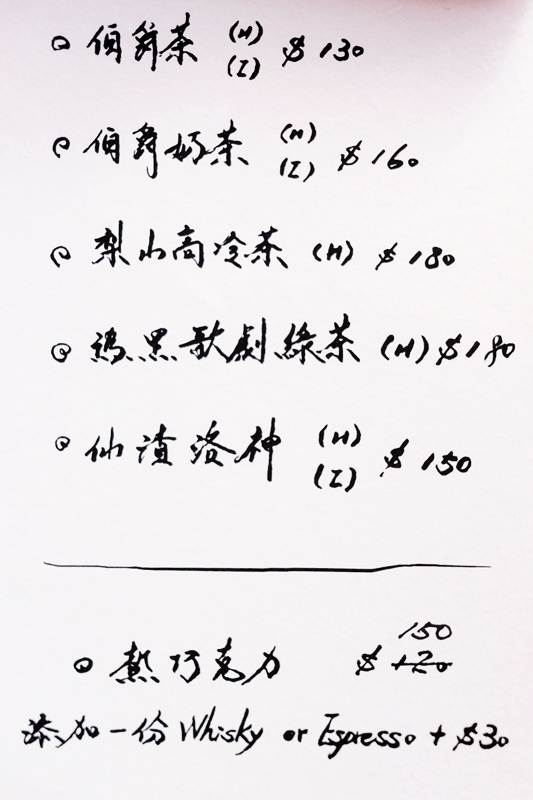 伯爵茶 (H) (I) $130
伯爵奶茶 (H) (I) $160
梨山高冷茶 (H) $180
瑪黑歌劇綠茶 (H) $180
仙渣洛神 (H) (I) $150
150
熱巧克力 $120
添加一份 Whisky or Espresso + $30